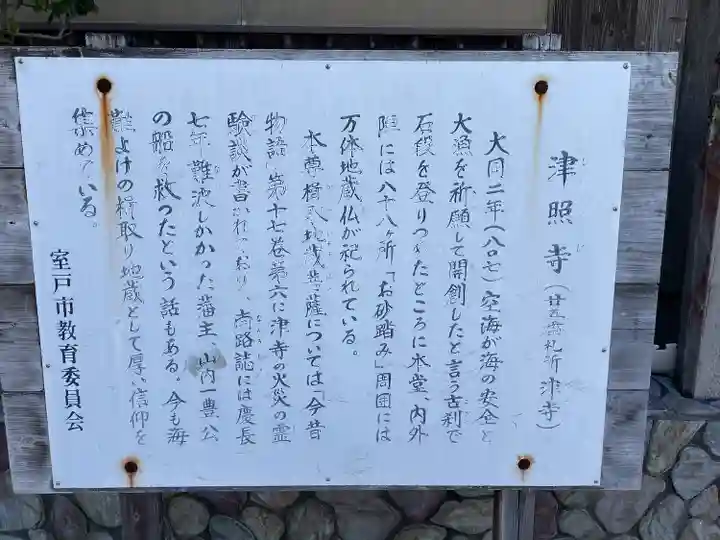 津照寺(廿五番札所 津寺)
しんしょうじ
大同二年(八〇七)空海が海の安全と
大漁を祈願して開創したと言う古刹で
石段を登りつめたところに本堂、内外
陣には八十八ヶ所「お砂踏み」周囲には
万体地蔵仏が祀られている。
本尊楫取地蔵菩薩については「今昔
物語」第十七巻第六に津寺の火災の霊
験談が書かれており、南路誌には慶長
なんろし
七年難波しかかった藩主、山内一豊公
の船を救ったという話もある。今も海
難よけの楫取り地蔵として厚い信仰を
集めている。
室戸市教育委員会